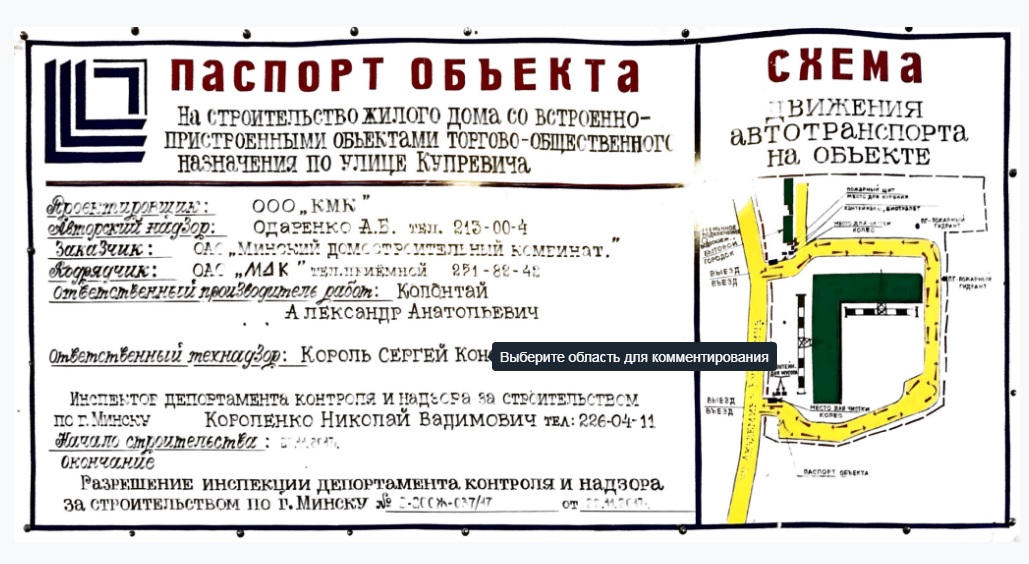 ПАСПОРТ ОБЪЕКТА
НА СТРОИТЕЛЬСТВО ЖИЛОГО ДОМА СО ВСТРОЕННО-
ПРИСТРОЕННЫМИ ОБЪЕКТАМИ ТОРГОВО-ОБЩЕСТВЕННОГО
НАЗНАЧЕНИЯ ПО УЛИЦЕ КУПРЕВИЧА
Проектировщик: ООО „КМК"
Авторский надзор: ОДАРЕНКО А.Б. тел. 213-00-4
Заказчик: ОАО „МИНСКИЙ ДОМОСТРОИТЕЛЬНЫЙ КОМБИНАТ."
Подрядчик: ОАО „МДК" ТЕЛ.ПРИЁМНОЙ 251-82-42
Ответственный производитель работ: КОЛОНТАЙ
АЛЕКСАНДР АНАТОЛЬЕВИЧ
Ответственный технадзор: КОРОЛЬ СЕРГЕЙ КОН
Выберите область для комментирования
ИНСПЕКТОР ДЕПОРТАМЕНТА КОНТРОЛЯ И НАДЗОРА ЗА СТРОИТЕЛЬСТВОМ
ПО Г.МИНСКУ КОРОЛЕНКО НИКОЛАЙ ВАДИМОВИЧ ТЕЛ: 226-04-11
Начало строительства:
окончание
РАЗРЕШЕНИЕ ИНСПЕКЦИИ ДЕПОРТАМЕНТА КОНТРОЛЯ И НАДЗОРА
ЗА СТРОИТЕЛЬСТВОМ ПО Г.МИНСКУ № ОТ
СХЕМА
ДВИЖЕНИЯ
АВТОТРАНСПОРТА
НА ОБЪЕКТЕ
ПОЖАРНЫЙ ЩИТ
МЕСТО ДЛЯ КУРЕНИЯ
МЕСТО ДЛЯ ЧИСТКИ
КОЛЕС
ПГ-ПОЖАРНЫЙ
ГИДРАНТ
БЫТОВОЙ
ГОРОДОК
ВЫЕЗД
ВЪЕЗД
ПГ-ПОЖАРНЫЙ
ГИДРАНТ
ВЫЕЗД
ВЪЕЗД
МЕСТО ДЛЯ ЧИСТКИ
КОЛЕС
ПАСПОРТ ОБЪЕКТА